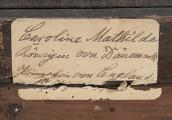 Caroline Mathilda
Königin von Dänemark
Prinzessin von England